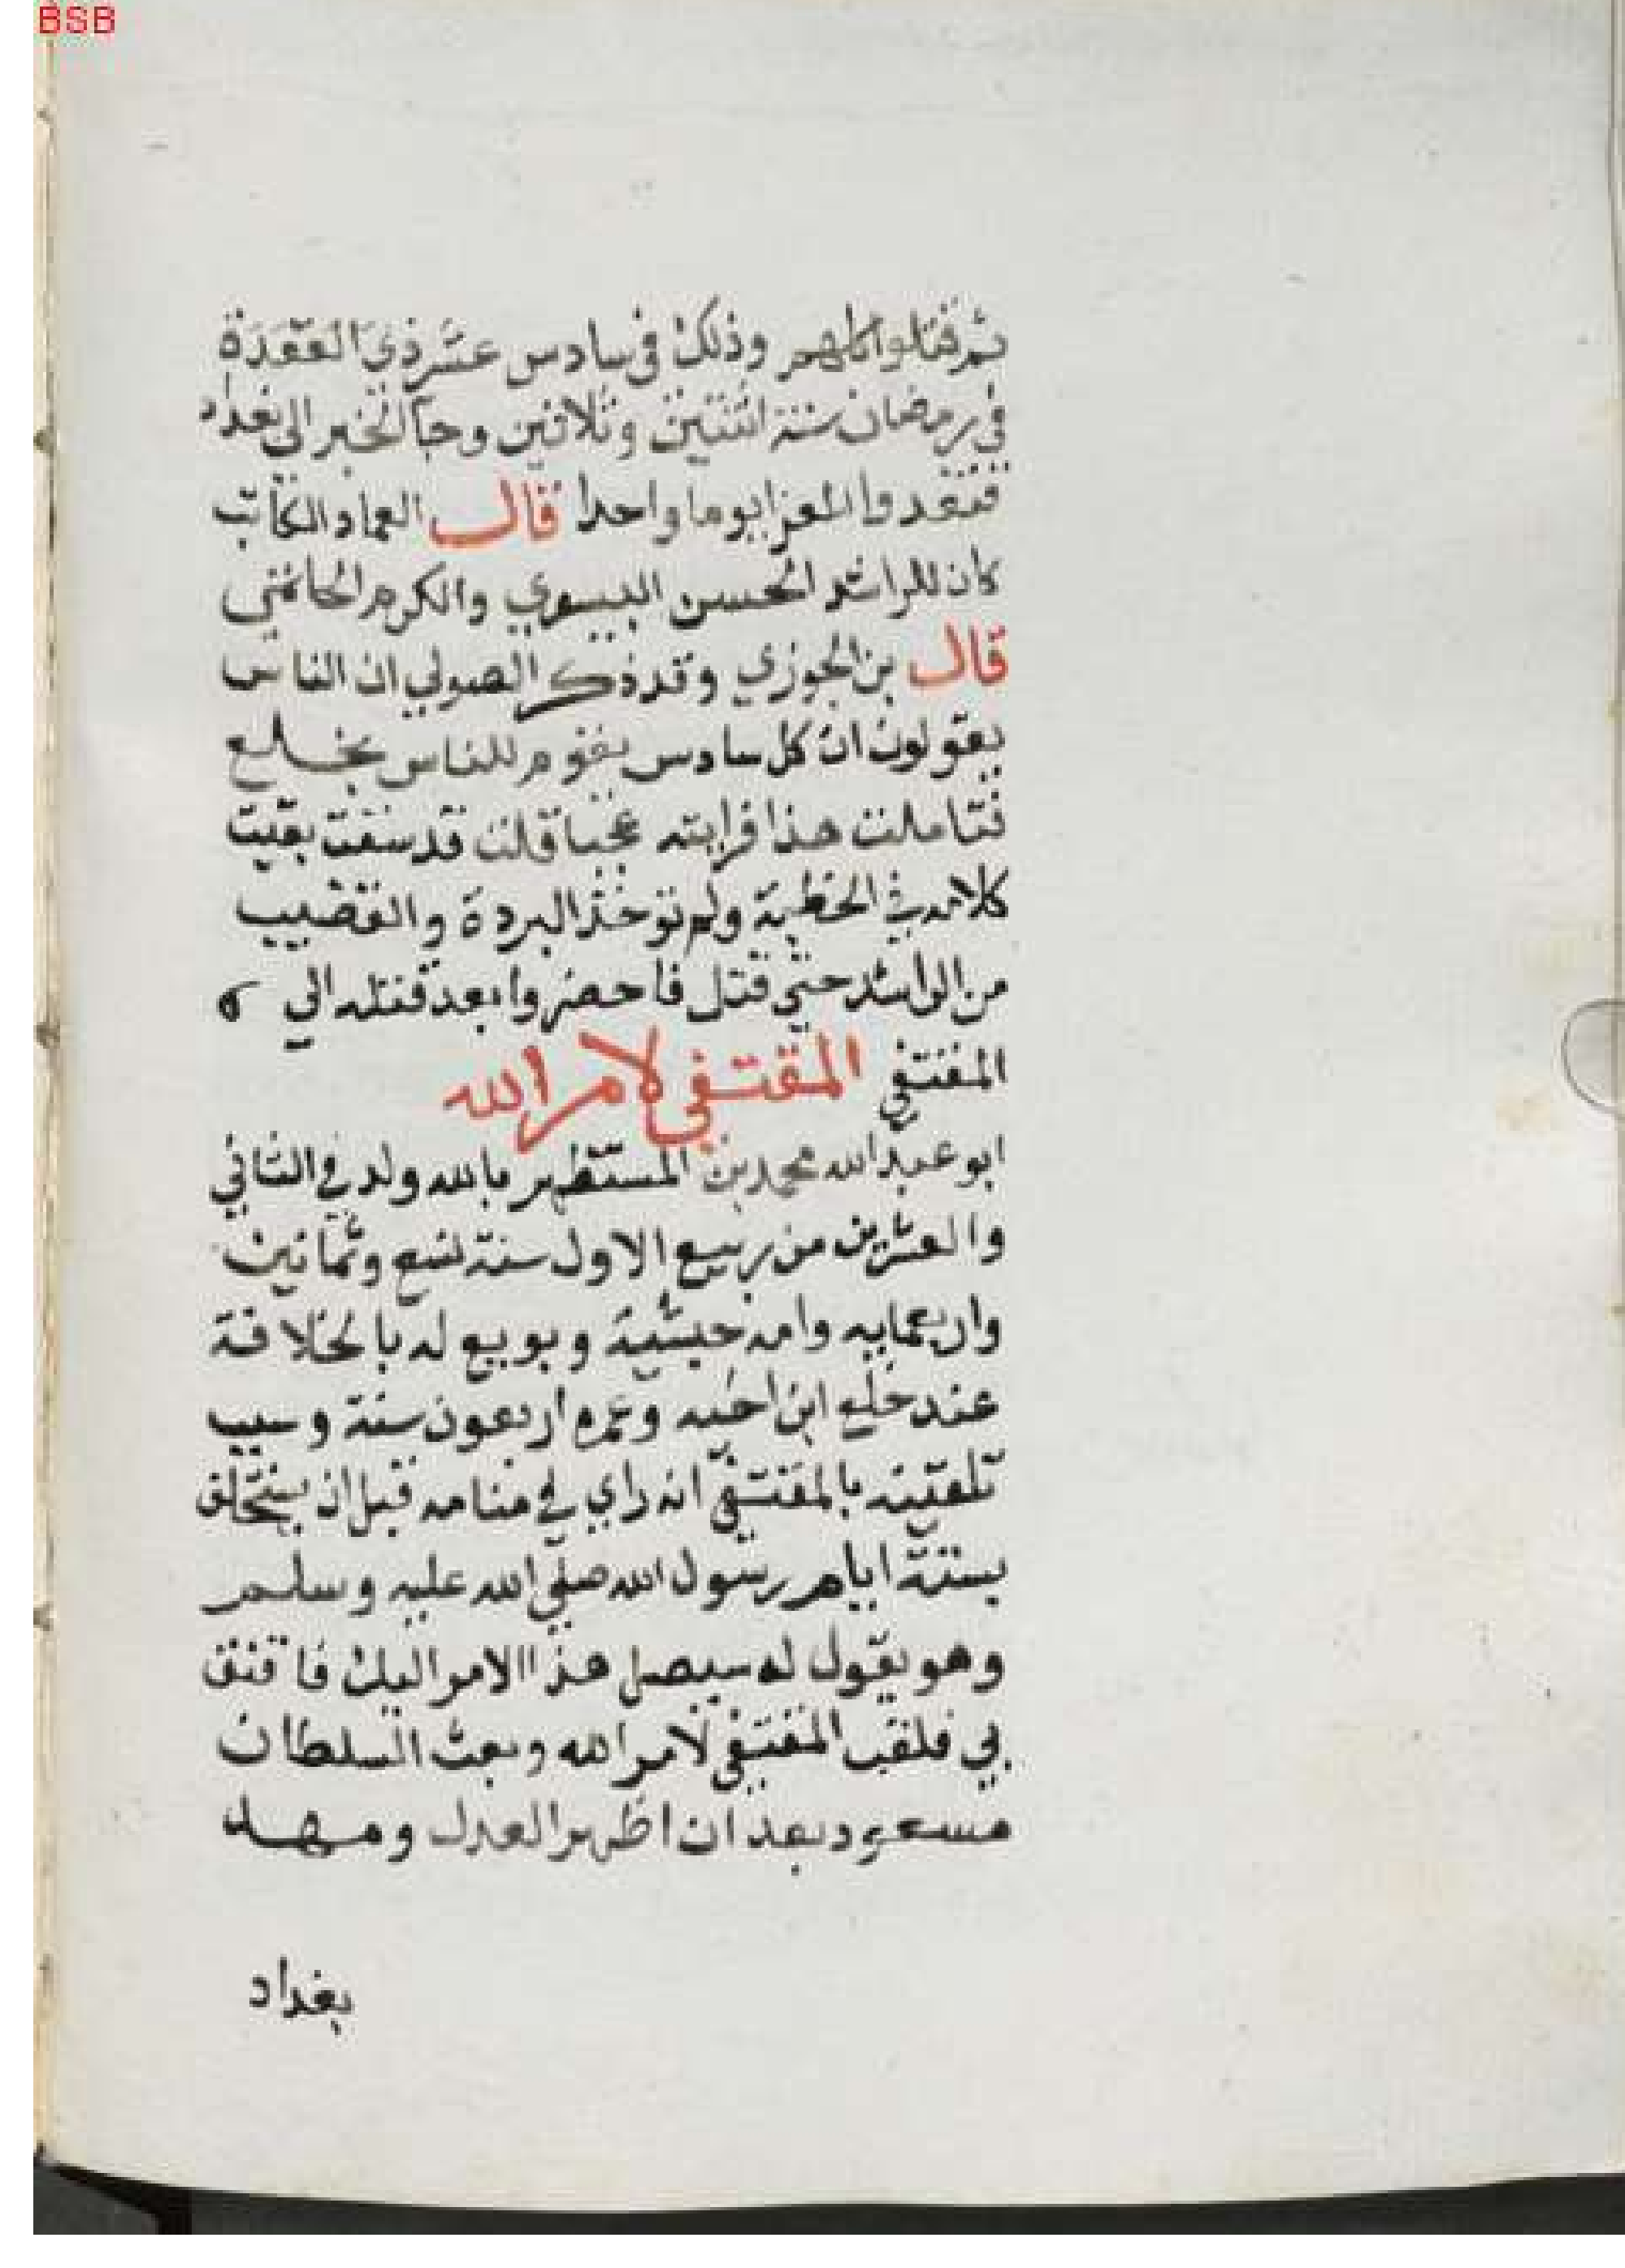 BSB
ثم قتلوا كلهم وذلك في سادس عشر ذي القعدة
في رمضان سنة اثنتين وثلاثين وجا الخبر الي بغداد
فقعدوا للعزا يوما واحدا قال العماد الكاتب
كان للراشد الحسن اليسوي والكرم الحاتمي
قال بن الجوزي وقد ذكر الصولي ان الناس
يقولون ان كل سادس يقوم للناس يخلع
فتاملت هذا فرايته عجبا قلت قد سقت بقيت
كلامه في الخطبة ولم توخذ البردة والقضيب
من الراشد حتي قتل فاحضروا بعد قتله الي
المقتفي المقتفي لامر الله
ابو عبد الله محمد بن المستظهر بالله ولد في الثاني
والعشرين من ربيع الاول سنة تسع وثمانين
واربعمايه وامه حبشية وبويع له بالخلافة
عند خلع ابن اخيه وعمره اربعون سنة وسبب
تلقيبه بالمقتفي انه راي في منامه قبل ان يستخلق
بستة ايام رسول الله صلي الله عليه وسلم
وهو يقول له سيصل هذا الامر اليك فاقتق
بي فلقب المقتفي لامر الله وبعث السلطان
مسعود بعد ان اظهر العدل ومهد
بغداد